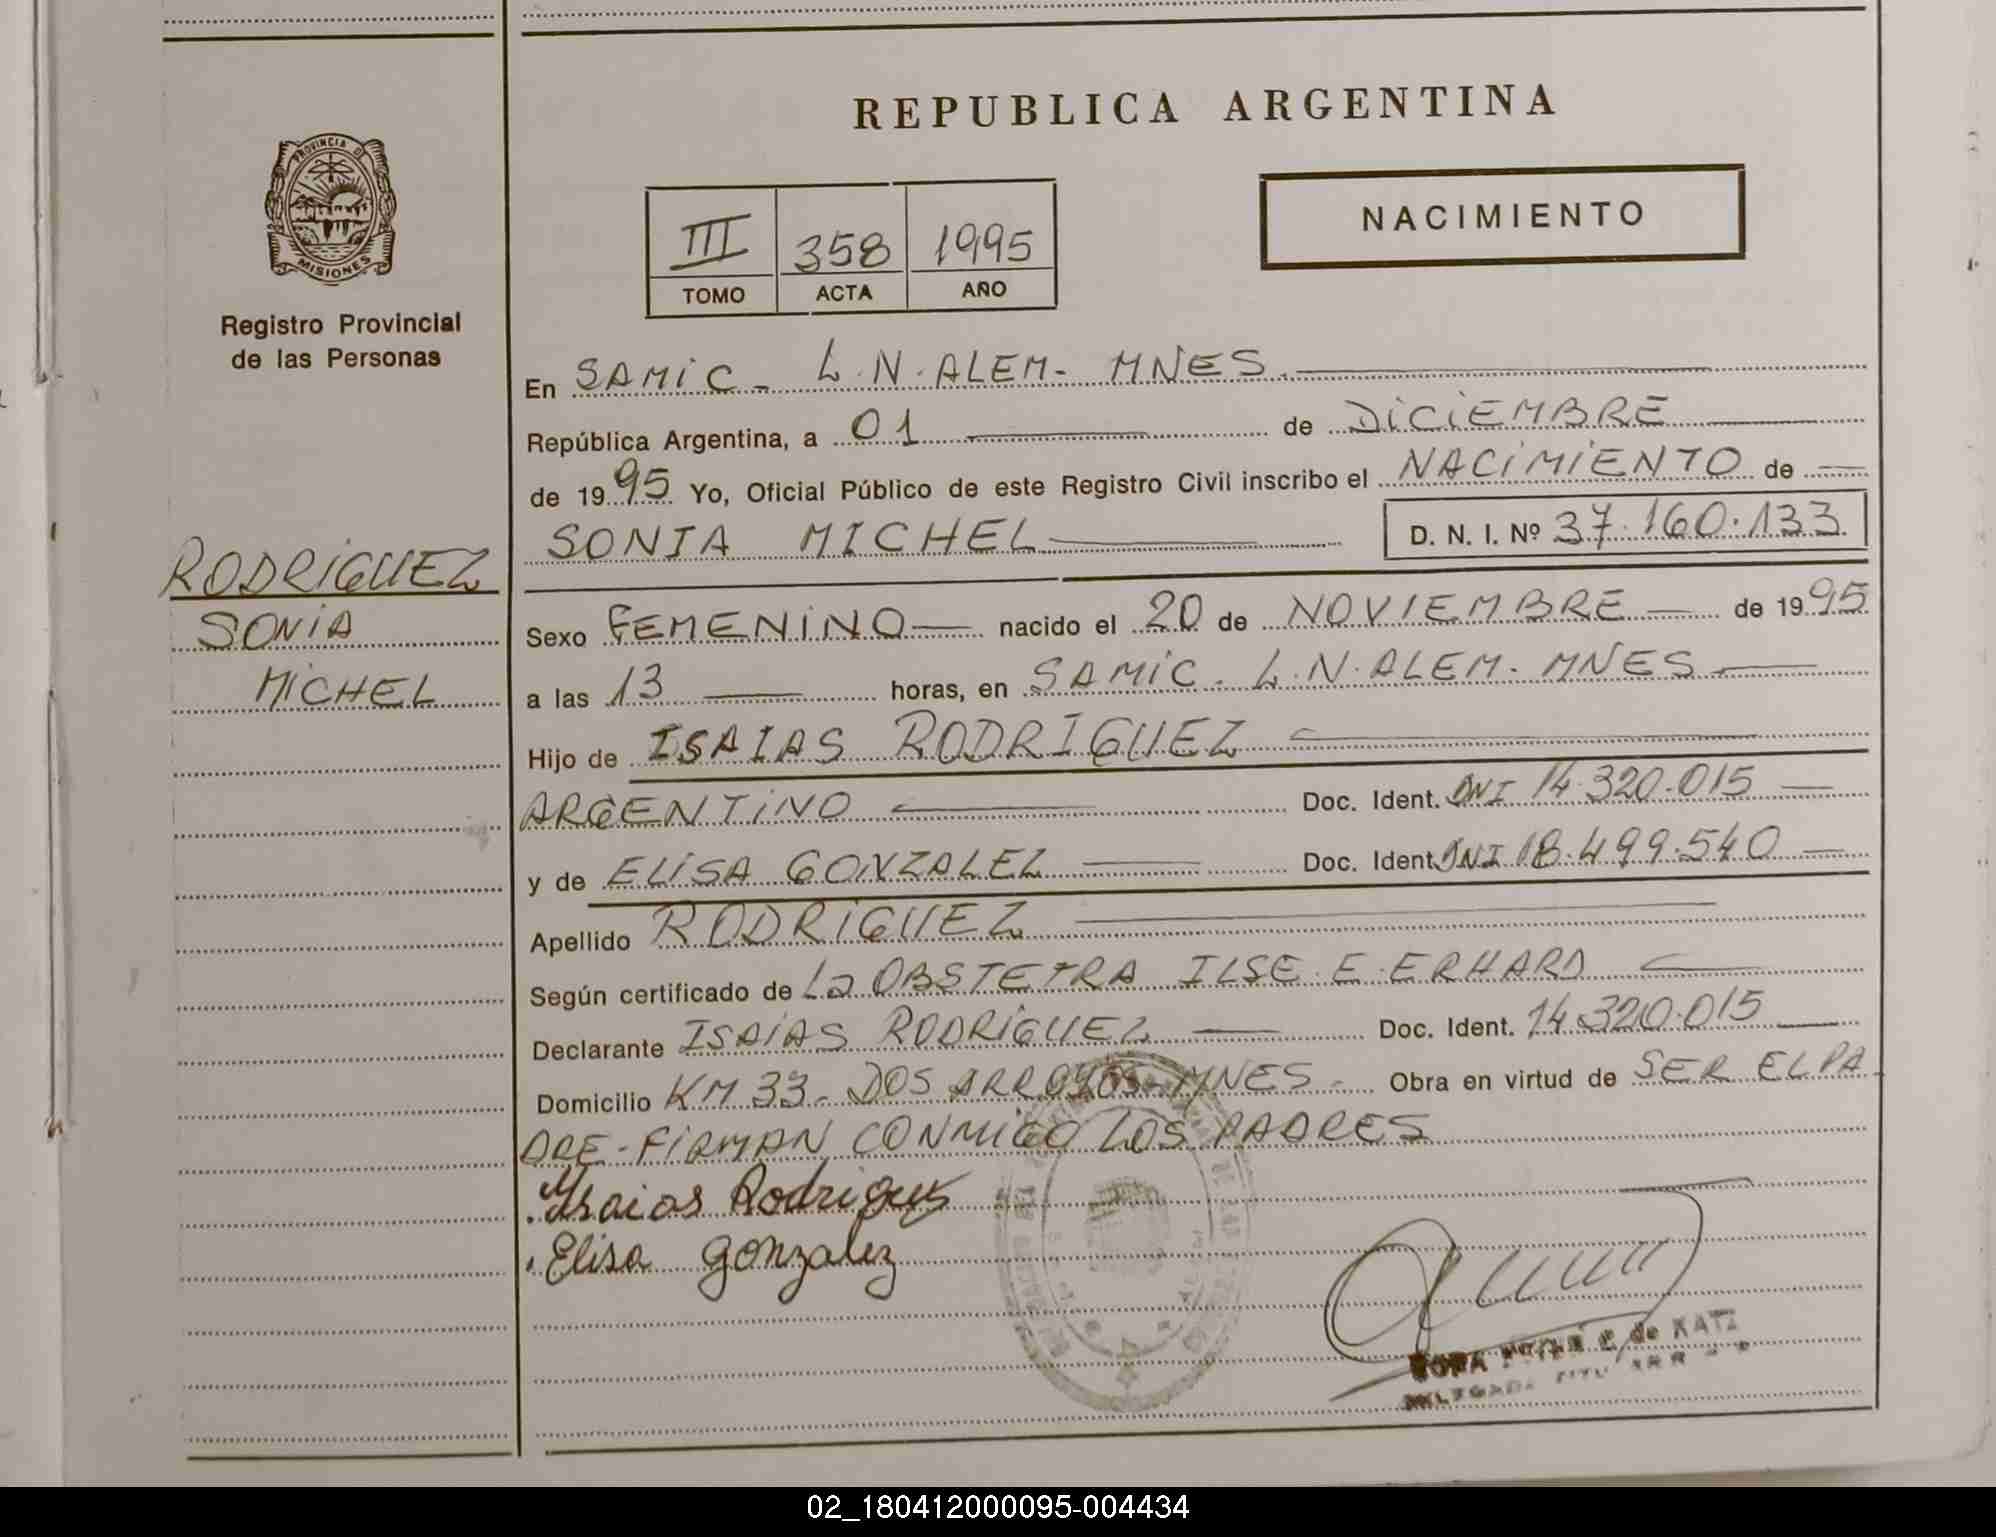 REPUBLICA ARGENTINA
PROVINCIA D
MISIONES
Registro Provincial
de las Personas
NACIMIENTO
III 358 1995
TOMO ACTA AÑO
En SAMIC - L.N. ALEM - MNES.
República Argentina, a 01 de DICIEMBRE
de 1995 Yo, Oficial Público de este Registro Civil inscribo el NACIMIENTO de
SONIA MICHEL D. N. I. Nº 37.160.133
RODRIGUEZ
SONIA
MICHEL
Sexo FEMENINO nacido el 20 de NOVIEMBRE de 1995
a las 13 horas, en SAMIC - L.N. ALEM - MNES
Hijo de ISAIAS RODRIGUEZ
ARGENTINO Doc. Ident. DNI 14.320.015
y de ELISA GONZALEZ Doc. Ident. DNI 18.499.540
Apellido RODRIGUEZ
Según certificado de La OBSTETRA ILSE E. ERHARD
Declarante ISAIAS RODRIGUEZ Doc. Ident. 14.320.015
Domicilio KM 33 - DOS ARROYOS - MNES - Obra en virtud de SER EL PA
DRE - FIRMAN CONMIGO LOS PADRES
Isaias Rodriguez
Elisa gonzalez
de KATZ
DELEGADA
02_180412000095-004434